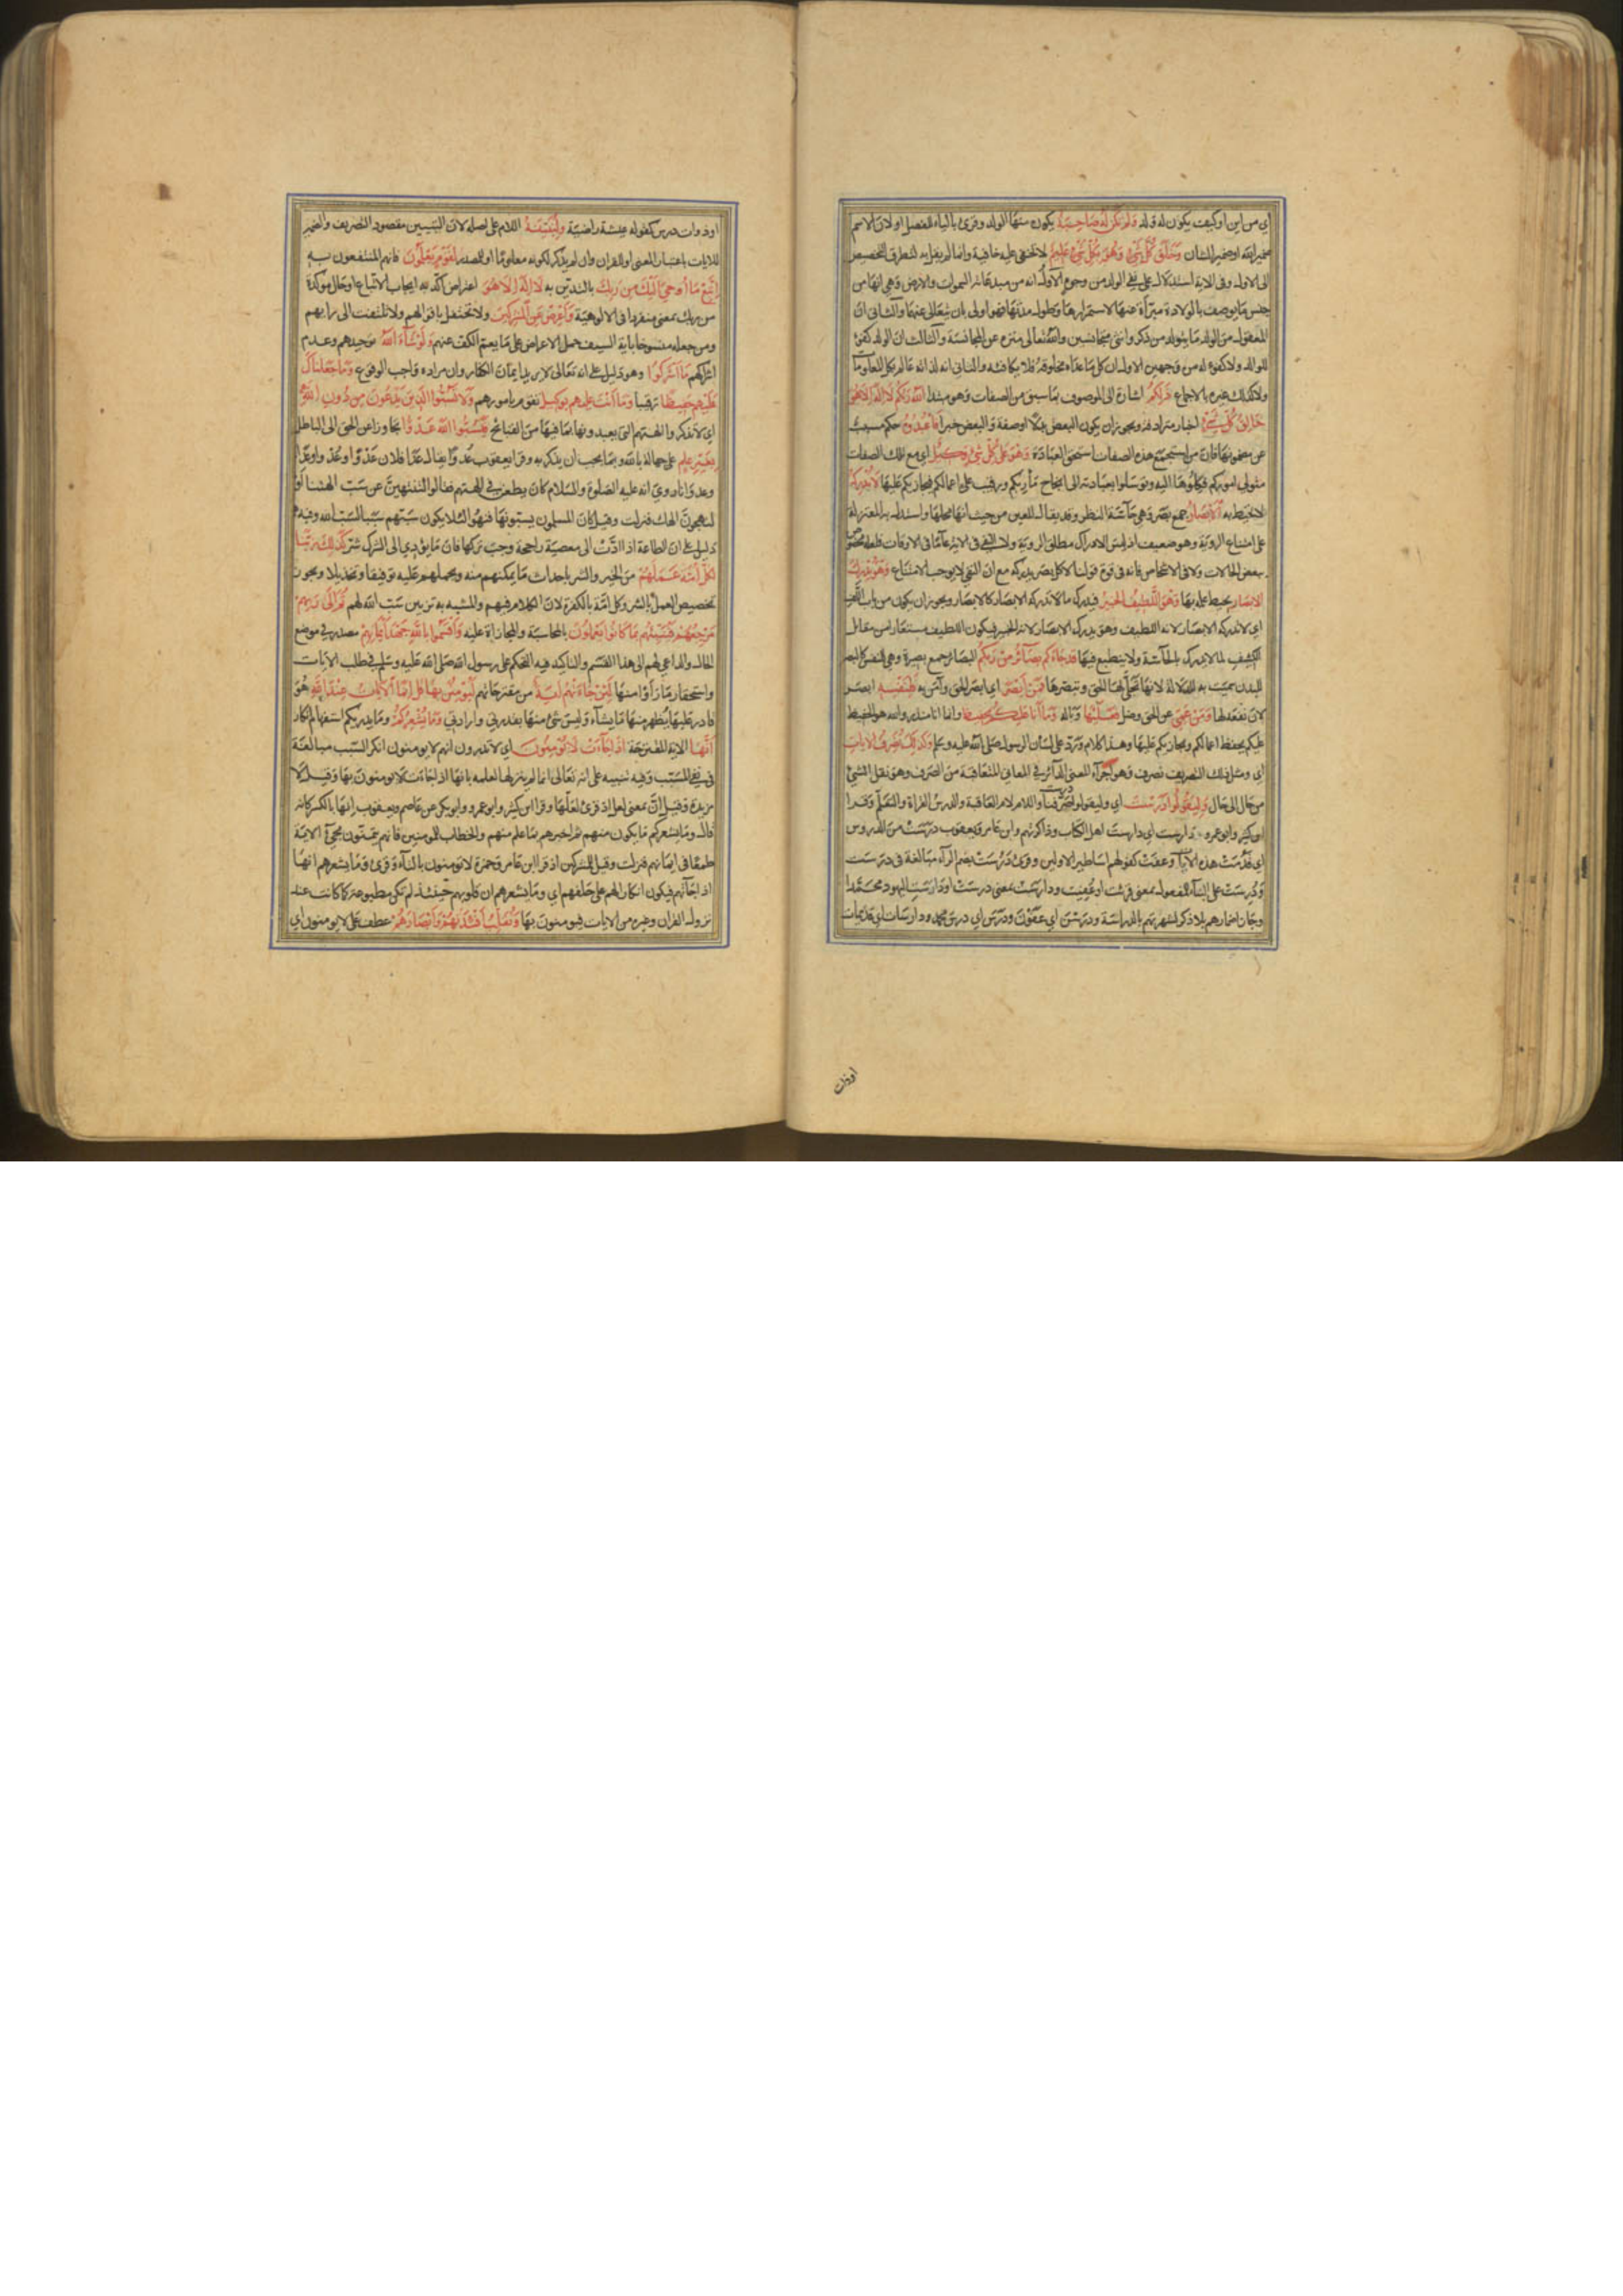 اي من اين او كيف يكون له ولد ولم تكن له صاحبة يكون منها الولد وقرئ بالياء للفصل او لان الاسم
ضمير الله او ضمير الشان وخلق كل شيء وهو بكل شيء عليم لا تخفى عليه خافية وانما لم يقل به لتطرق التخصيص
الى الاول وفي الاية استدلال على نفي الولد من وجوه الاول انه من مبدعاته السموات والارض وهي انها من
جنس ما يوصف بالولادة مبرأة عنها لاستمرارها وطول مدتها فهو اولى بان يتعالى عنها والثاني ان
المعقول من الولد ما يتولد من ذكر وانثى متجانسين والله تعالى منزه عن المجانسة والثالث ان الولد كفؤ
للوالد ولا كفؤ له من وجهين الاول ان كل ما عداه مخلوقه فلا يكافئه والثاني انه لذاته عالم بكل المعلومات
ولا كذلك غيره بالاجماع ذلكم اشارة الى الموصوف بما سبق من الصفات وهو مبتدا الله ربكم لا اله الا هو
خالق كل شيء اخبار مترادفة ويجوز ان يكون البعض بدلا او صفة والبعض خبرا فاعبدوه حكم مسبب
عن مضمونها فان من استجمع هذه الصفات استحق العبادة وهو على كل شيء وكيل اي مع تلك الصفات
متولي اموركم فكلوها اليه وتوسلوا بعبادته الى انجاح مآربكم ورقيب على اعمالكم فيجازيكم عليها لا تدركه
لا تحيط به الابصار جمع بصر وهي حاسة النظر وقد يقال للعين من حيث انها محلها واستدل به المعتزلة
على امتناع الرؤية وهو ضعيف اذ ليس الادراك مطلق الرؤية ولا النفي في الاية عاما في الاوقات فلعله مخصوص
ببعض الحالات ولا في الاشخاص فانه في قوة قولنا لا كل بصر يدركه مع ان النفي لا يوجب الامتناع وهو يدرك
الابصار يحيط علمه بها وهو اللطيف الخبير فيدرك ما لا تدركه الابصار كالابصار ويجوز ان يكون من باب اللف
اي لا تدركه الابصار لانه اللطيف وهو يدرك الابصار لانه الخبير فيكون اللطيف مستعارا من مقابل
الكثيف لما لا يدرك بالحاسة ولا ينطبع فيها قد جاءكم بصائر من ربكم البصائر جمع بصيرة وهي للنفس كالبصر
للبدن سميت به الدلالة لانها تجلي لها الحق وتبصرها فمن ابصر اي ابصر الحق وآمن به فلنفسه ابصر
لان نفعه لها ومن عمي عن الحق وضل فعليها وباله وما انا عليكم بحفيظ وانما انا منذر والله هو الحفيظ
عليكم يحفظ اعمالكم ويجازيكم عليها وهذا كلام ورد على لسان الرسول صلى الله عليه وسلم وكذلك نصرف الايات
اي ومثل ذلك التصريف نصرف وهو اجراء المعنى الدائر في المعاني المتعاقبة من الصرف وهو نقل الشيء
من حال الى حال وليقولوا درست اي وليقولوا درست صرفنا واللام لام العاقبة والدرس القراءة والتعلم وقرا
ابن كثير وابو عمرو دارست اي دارست اهل الكتاب وذاكرتهم وابن عامر ويعقوب درست من الدروس
اي قدمت هذه الايات وعفت كقولهم اساطير الاولين وقرئ درست بضم الراء مبالغة في درست
ودرست على البناء للمفعول بمعنى قرئت او عفيت ودارست بمعنى درست او دارست اليهود محمدا
وجاز اضمارهم بلا ذكر لشهرتهم بالدراسة ودرسن اي عفون ودرس اي درس محمد ودارسات اي قديمات
اوذات
او ذوات درس كقوله عيشة راضية ولنبينه اللام على اصله لان التبيين مقصود التصريف والضمير
للايات باعتبار المعنى او للقران وان لم يذكر لكونه معلوما او للمصدر لقوم يعلمون فانهم المنتفعون به
اتبع ما اوحي اليك من ربك بالتدين به لا اله الا هو اعتراض اكد به ايجاب الاتباع او حال مؤكدة
من ربك بمعنى منفردا في الالوهية واعرض عن المشركين ولا تحتفل باقوالهم ولا تلتفت الى رايهم
ومن جعله منسوخا باية السيف حمل الاعراض على ما يعم الكف عنهم ولو شاء الله توحيدهم وعدم
اشراكهم ما اشركوا وهو دليل على انه تعالى لا يريد ايمان الكفار وان مراده واجب الوقوع وما جعلناك
عليهم حفيظا رقيبا وما انت عليهم بوكيل تقوم بامورهم ولا تسبوا الذين يدعون من دون الله
اي لا تذكروا الهتهم التي يعبدونها بما فيها من القبائح فيسبوا الله عدوا تجاوزا عن الحق الى الباطل
بغير علم على جهالة بالله وبما يجب ان يذكر به وقرا يعقوب عدوا يقال عدا فلان عدوا وعدوا وعداء
وعدوانا روي انه عليه الصلوة والسلام كان يطعن في الهتهم فقالوا لتنتهين عن سب الهتنا او
لنهجون الهك فنزلت وقيل كان المسلمون يسبونها فنهوا لئلا يكون سبهم سببا لسب الله وفيه
دليل على ان الطاعة اذا ادت الى معصية راجحة وجب تركها فان ما يؤدي الى الشر شر كذلك زينا
لكل امة عملهم من الخير والشر باحداث ما يمكنهم منه ويحملهم عليه توفيقا وتخذيلا ويجوز
تخصيص العمل بالشر وكل امة بالكفرة لان الكلام فيهم والمشبه به تزيين سب الله لهم ثم الى ربهم
مرجعهم فينبئهم بما كانوا يعملون بالمحاسبة والمجازاة عليه واقسموا بالله جهد ايمانهم مصدر في موضع
الحال والداعي لهم الى هذا القسم والتاكيد فيه التحكم على رسول الله صلى الله عليه وسلم في طلب الايات
واستحقار ما راوا منها لئن جاءتهم اية من مقترحاتهم ليؤمنن بها قل انما الايات عند الله هو
قادر عليها يظهر منها ما يشاء وليس شيء منها بقدرتي وارادتي وما يشعركم وما يدريكم استفهام انكار
انها الاية المقترحة اذا جاءت لا يؤمنون اي لا تدرون انهم لا يؤمنون انكر السبب مبالغة
في نفي المسبب وفيه تنبيه على انه تعالى انما لم ينزلها لعلمه بانها اذا جاءت لا يؤمنون بها وقيل لا
مزيدة وقيل ان بمعنى لعل اذ قرئ لعلها وقرا ابن كثير وابو عمرو وابو بكر عن عاصم ويعقوب انها بالكسر كانه
قال وما يشعركم ما يكون منهم ثم اخبرهم بما علم منهم والخطاب للمؤمنين فانهم يتمنون مجيء الاية
طمعا في ايمانهم فنزلت وقيل للمشركين اذ قرا ابن عامر وحمزة لا تؤمنون بالتاء وقرئ وما يشعرهم انها
اذا جاءتهم فيكون انكارا لهم على حلفهم اي وما يشعرهم ان قلوبهم حينئذ لم تكن مطبوعة كما كانت عند
نزول القران وغيره من الايات فيؤمنون بها ونقلب افئدتهم وابصارهم عطف على لا يؤمنون اي